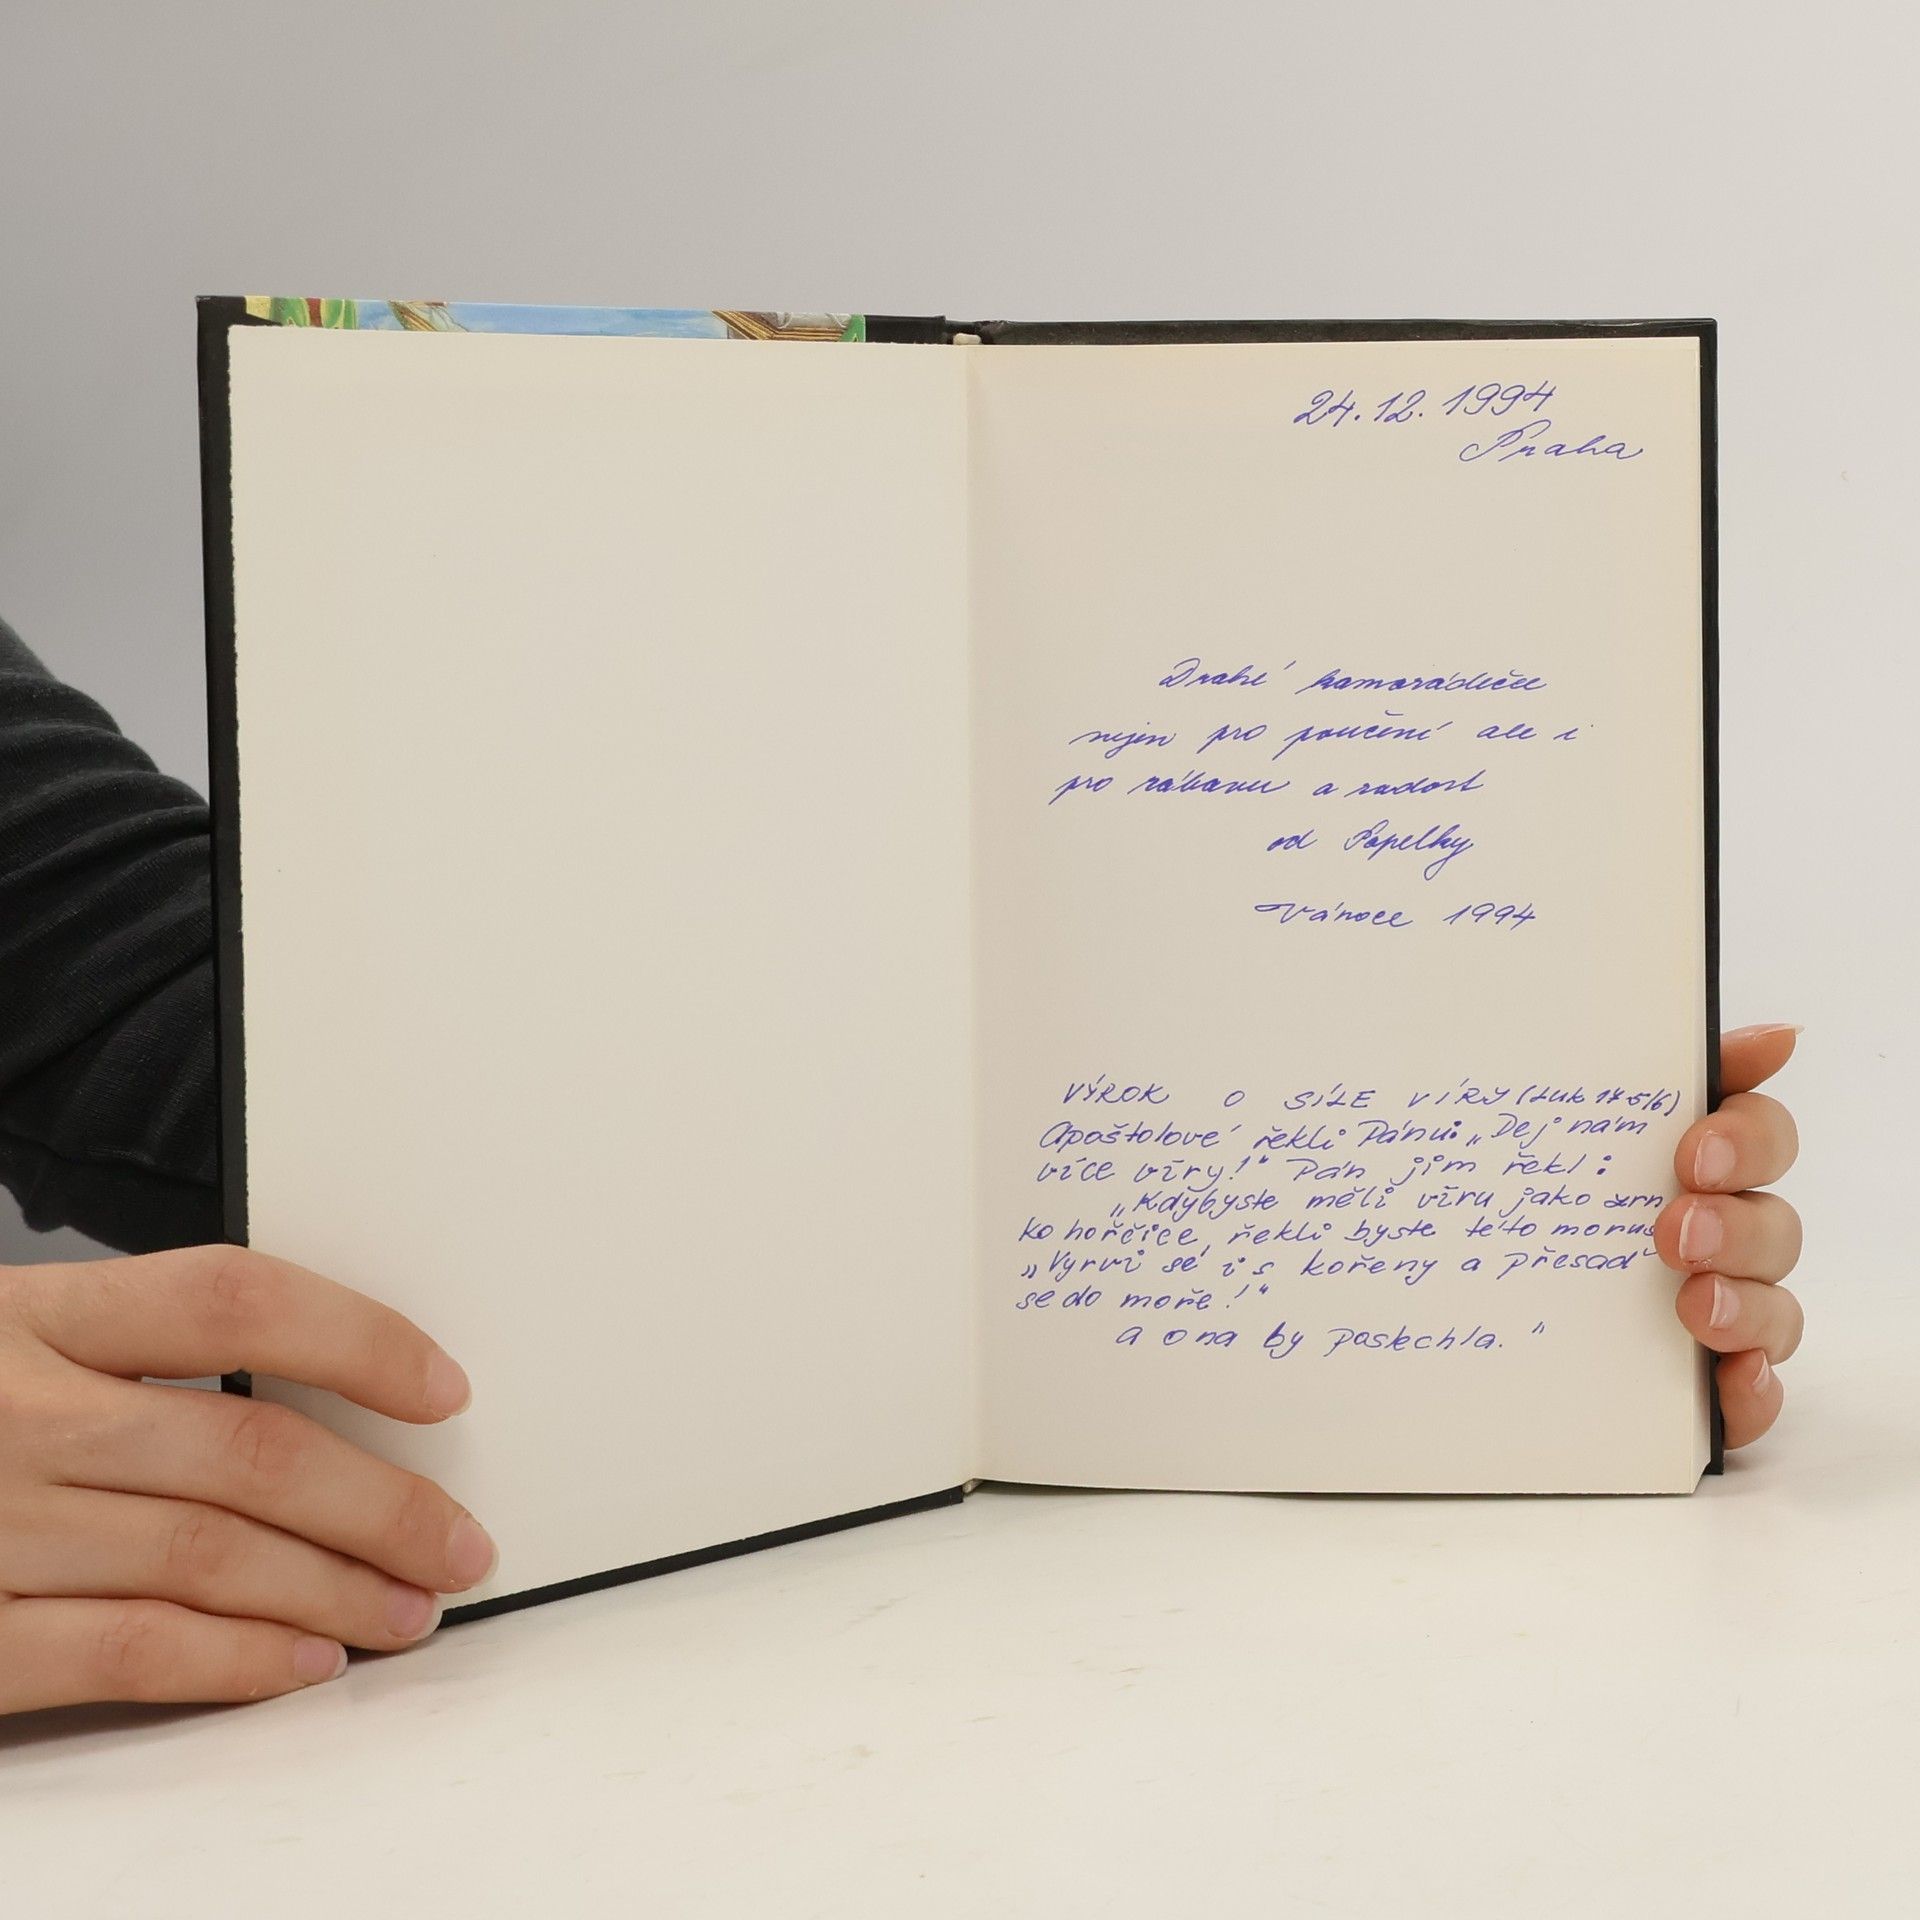 24.12.1994
Praha
Drahé kamarádičce
nejen pro poučení ale i
pro zábavu a radost
od Popelky
Vánoce 1994
VÝROK O SÍLE VÍRY (Luk 17 5/6)
Apoštolové řekli Pánu: „Dej nám
více víry!" Pán jim řekl:
„Kdybyste měli víru jako zrn
ko hořčice, řekli byste této morus
„Vyrvi se i s kořeny a přesaď
se do moře!"
a ona by poslechla."